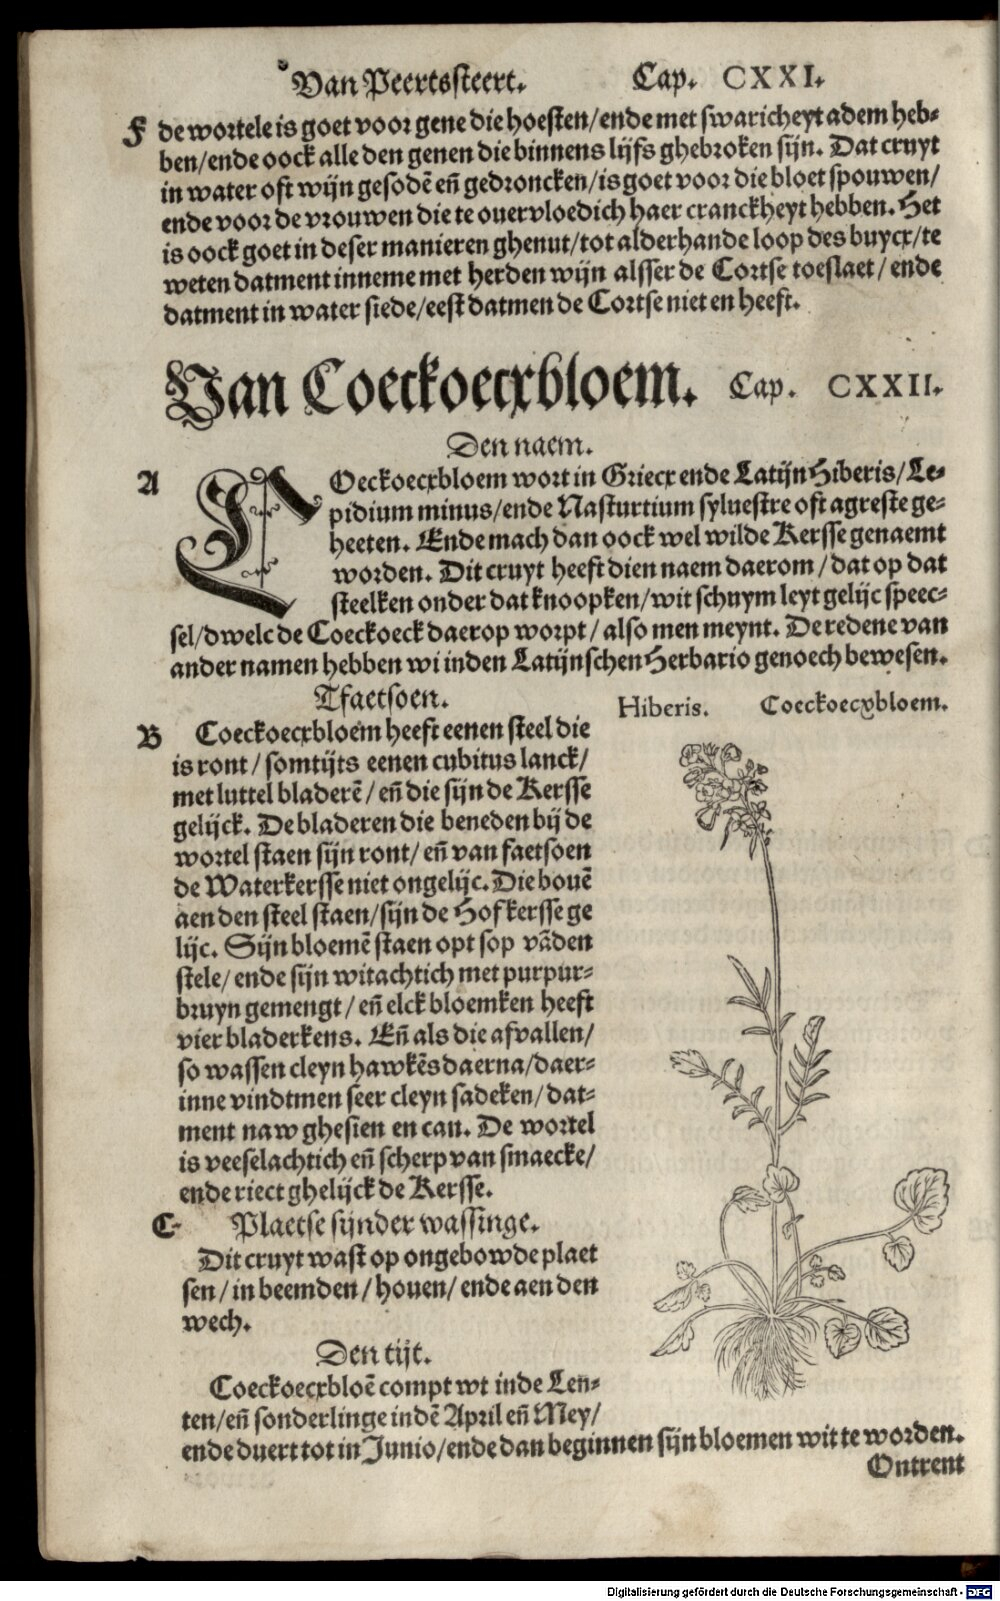 Van Peertssteert. Cap. CXXI.
F de wortele is goet voor gene die hoesten/ende met swaricheyt adem heb-
ben/ende oock alle den genen die binnens lijfs ghebroken sijn. Dat cruyt
in water oft wijn gesodē eñ gedroncken/is goet voor die bloet spouwen/
ende voor de vrouwen die te ouervloedich haer cranckheyt hebben. Het
is oock goet in deser manieren ghenut/tot alderhande loop des buycx/te
weten datment inneme met herden wijn alsser de Cortse toeslaet/ende
datment in water siede/eest datmen de Cortse niet en heeft.
Van Coeckoecxbloem. Cap. CXXII.
Den naem.
A COeckoecxbloem wort in Griecx ende Latijn Hiberis/Le-
pidium minus/ende Nasturtium syluestre oft agreste ge-
heeten. Ende mach dan oock wel wilde Kersse genaemt
worden. Dit cruyt heeft dien naem daerom/dat op dat
steelken onder dat knoopken/wit schuym leyt gelijc speec-
sel/dwelc de Coeckoeck daerop worpt/also men meynt. De redene van
ander namen hebben wi inden Latijnschen Herbario genoech bewesen.
Tfaetsoen.
Hiberis. Coeckoecxbloem.
B Coeckoecxbloem heeft eenen steel die
is ront/somtijts eenen cubitus lanck/
met luttel bladerē/eñ die sijn de Kersse
gelijck. De bladeren die beneden bij de
wortel staen sijn ront/eñ van faetsoen
de Waterkersse niet ongelijc. Die bouē
aen den steel staen/sijn de Hofkersse ge
lijc. Sijn bloemē staen opt sop vāden
stele/ende sijn witachtich met purpur-
bruyn gemengt/eñ elck bloemken heeft
vier bladerkens. Eñ als die afvallen/
so wassen cleyn hawkēs daerna/daer-
inne vindtmen seer cleyn sadeken/dat-
ment naw ghesien en can. De wortel
is veeselachtich eñ scherp van smaecke/
ende riect ghelijck de Kersse.
C Plaetse sijnder wassinge.
Dit cruyt wast op ongebowde plaet
sen/in beemden/houen/ende aen den
wech.
Den tijt.
Coeckoecxbloē compt wt inde Len-
ten/eñ sonderlinge indē April eñ Mey/
ende duert tot in Junio/ende dan beginnen sijn bloemen wit te worden.
Ontrent
Digitalisierung gefördert durch die Deutsche Forschungsgemeinschaft - DFG